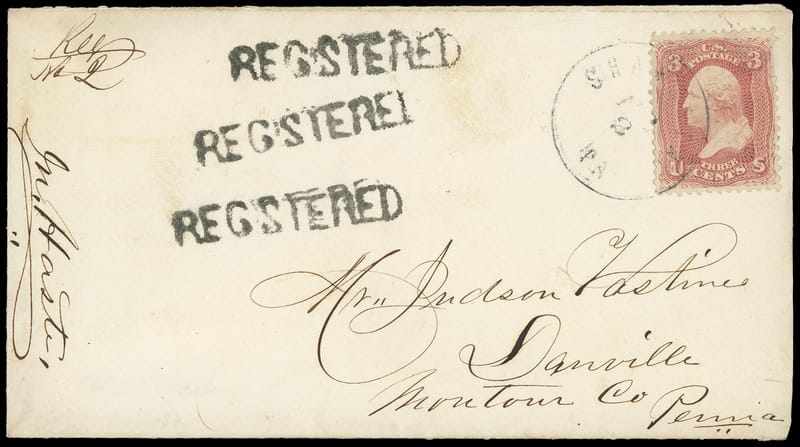 Rec
No 2
REGISTERED
REGISTERED
REGISTERED
In Haste,
SHA
12
3 U.S. 3
POSTAGE
U THREE S
CENTS
Mr. Judson Vastine
Danville
Montour Co
Penna